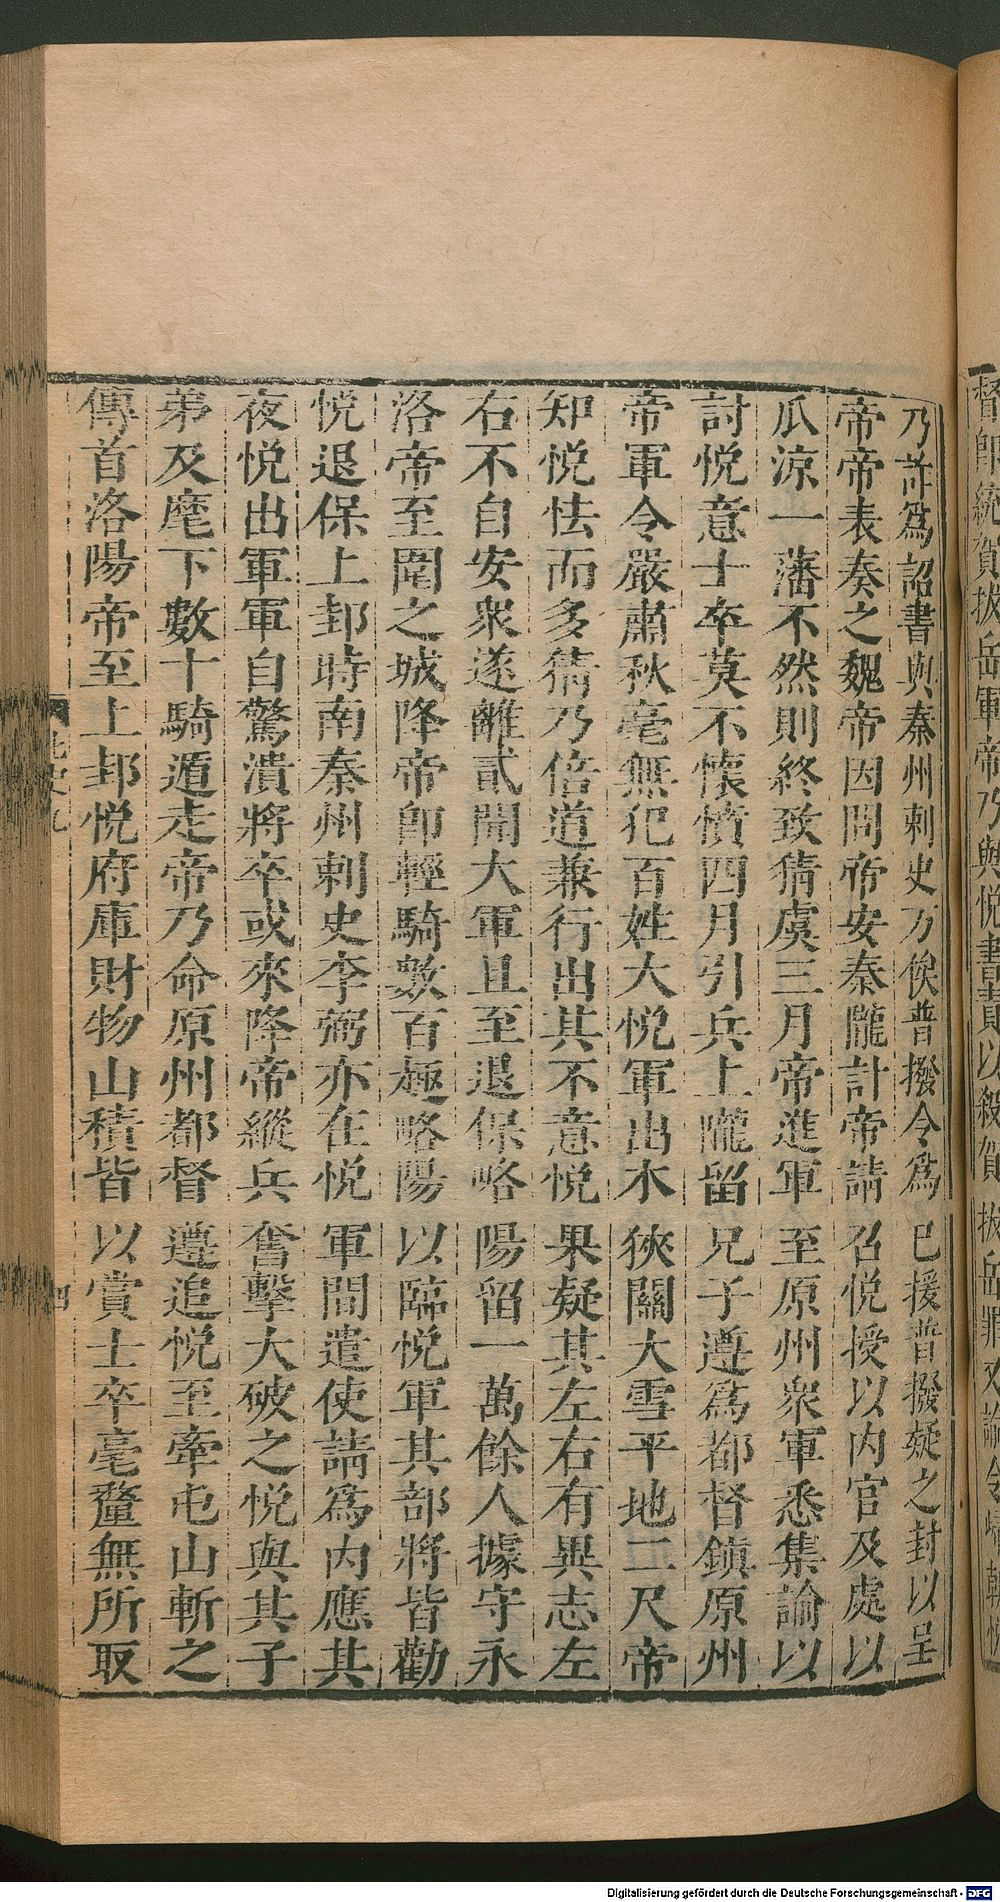 督帥統賀拔岳軍帝乃與悅書責以殺賀拔岳罪又論令歸朝悅
乃詐爲詔書與秦州剌史万俟普撥令爲已援普撥疑之封以呈
帝帝表奏之魏帝因問帝安秦隴計帝請召悅授以内官及處以
瓜凉一藩不然則終致猜虞三月帝進軍至原州衆軍悉集諭以
討悅意士卒莫不懷憤四月引兵上隴留兄子遵爲都督鎮原州
帝軍令嚴肅秋毫無犯百姓大悅軍出木狹關大雪平地二尺帝
知悅怯而多猜乃倍道兼行出其不意悅果疑其左右有異志左
右不自安衆遂離貳聞大軍且至退保略陽留一萬餘人據守永
洛帝至圍之城降帝卽輕騎數百趣略陽以臨悅軍其部將皆勸
悅退保上邽時南秦州剌史李弼亦在悅軍間遣使請爲内應其
夜悅出軍軍自驚潰將卒或來降帝縱兵奮擊大破之悅與其子
弟及麾下數十騎遁走帝乃命原州都督遵追悅至牽屯山斬之
傳首洛陽帝至上邽悅府庫財物山積皆以賞士卒毫釐無所取
北史九
四
Digitalisierung gefördert durch die Deutsche Forschungsgemeinschaft - DFG